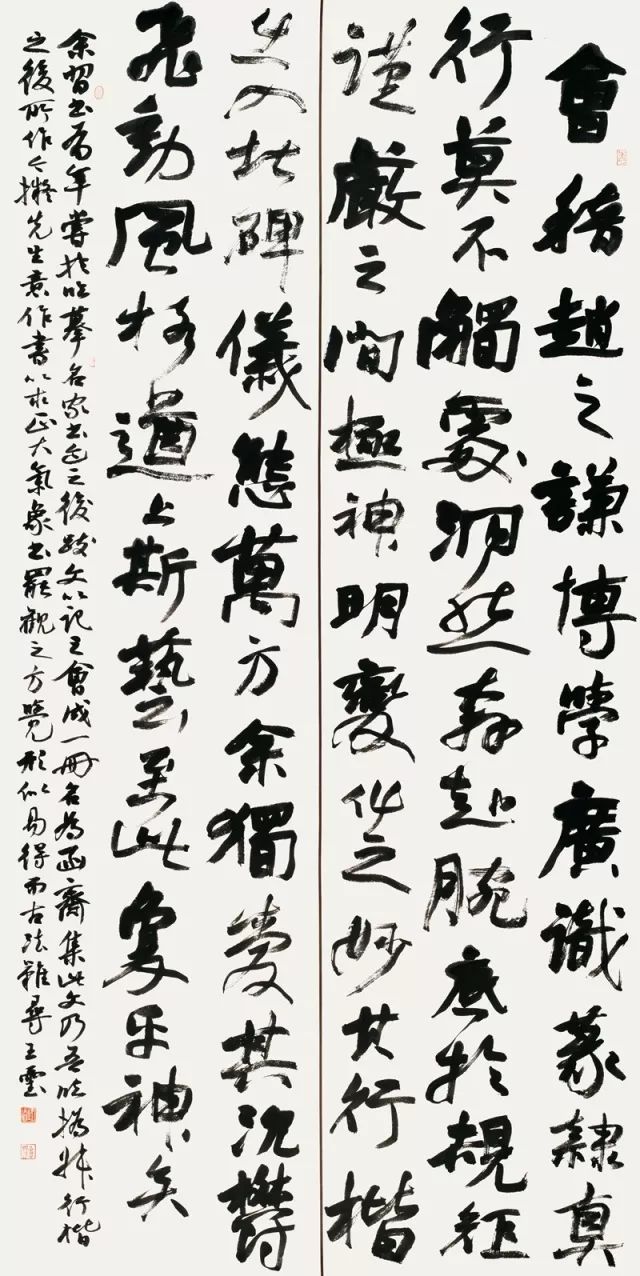 會稽趙之謙博學廣識篆隸真
行莫不觸處洞然奔赴腕底於規矩
謹嚴之間極神明變化之妙其行楷
出入北碑儀態萬方余獨愛其沉鬱
飛動風格遒上斯藝至此乎神矣
余習書有年嘗於臨摹名家書迹之後跋文以記之會成一冊名為齋集此文乃吾臨撝叔行楷
之後所作今擬先生意作書以求正大氣象書罷觀之方覺形似易得而古法難尋王